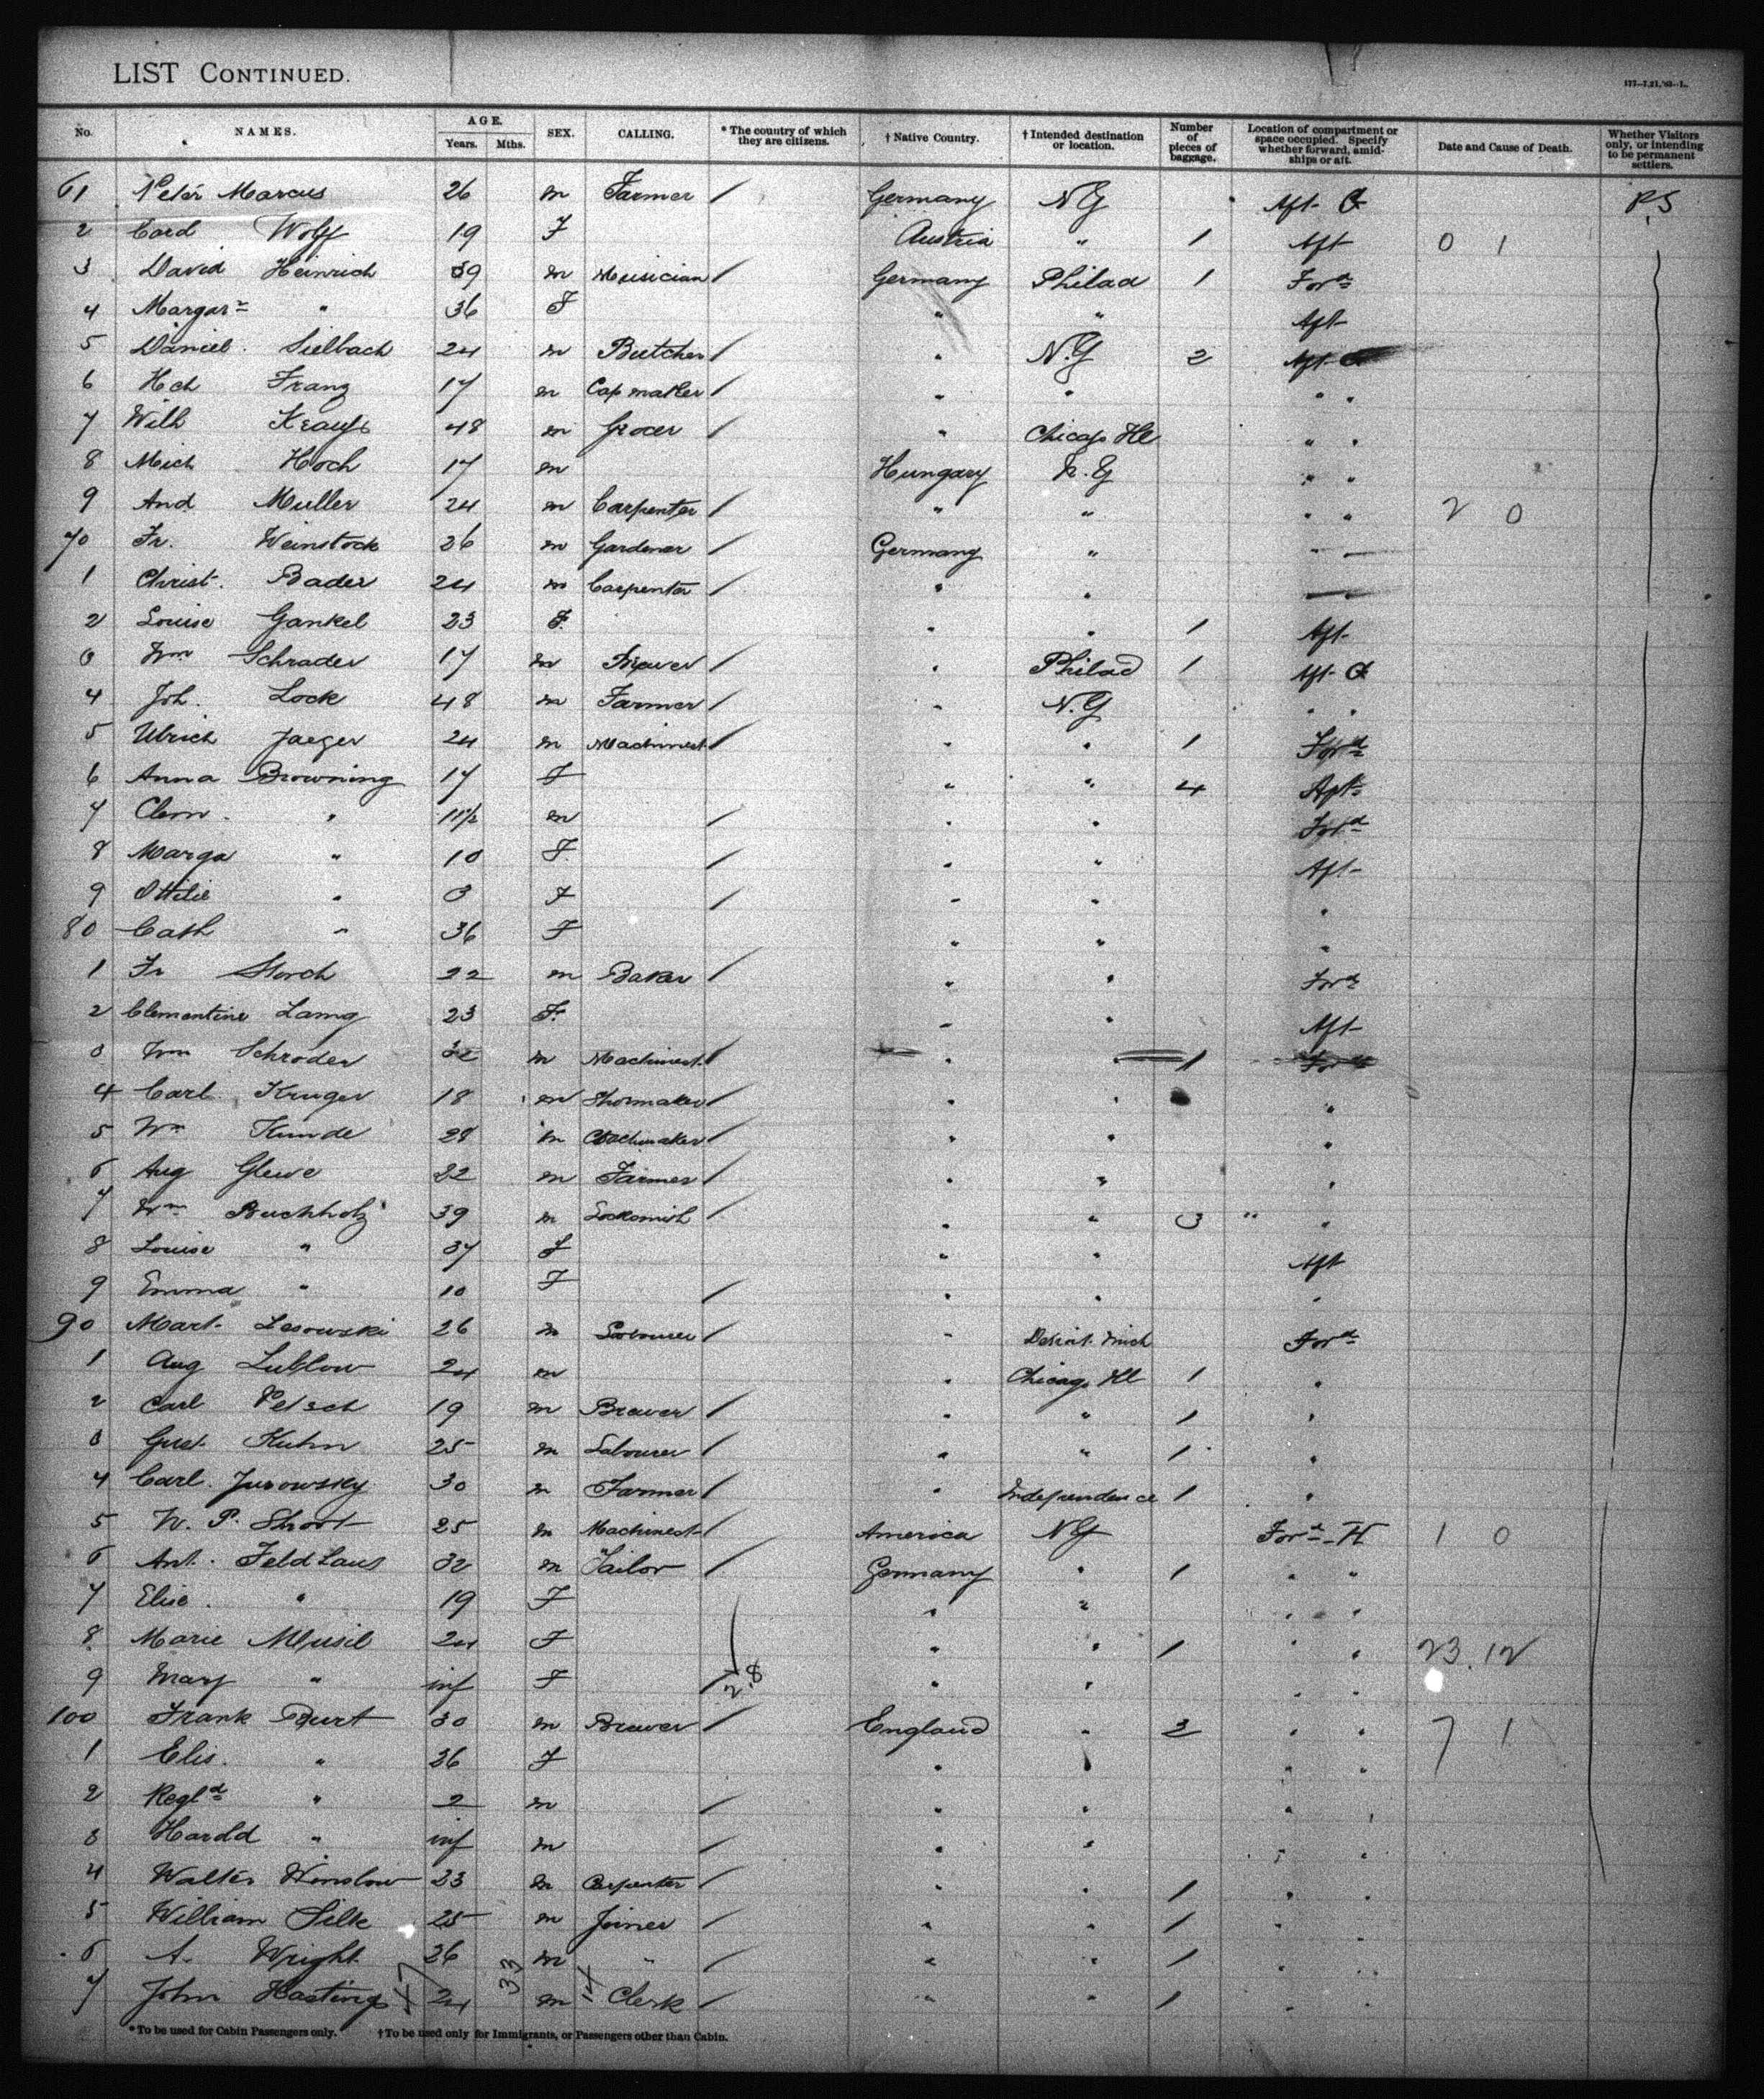 LIST CONTINUED.
177—7,21,'93—L.
No. NAMES. AGE. Years. Mths. SEX. CALLING. * The country of which they are citizens. † Native Country. † Intended destination or location. Number of pieces of baggage. Location of compartment or space occupied. Specify whether forward, amidships or aft. Date and Cause of Death. Whether Visitors only, or intending to be permanent settlers.
61 Peter Marcus 26 m Farmer / Germany NY Aft- PS
2 Cord Wolff 19 F Austria " 1 Aft 0 1
3 David Heinrich 39 m Musician / Germany Philad 1 Ford
4 Margar " 36 F " " Aft-
5 Daniel Sielbach 24 m Butcher / " N.Y 2 Aft
6 Hch Franz 17 m Cap maker / " " " "
7 Wilh Krauss 48 m Grocer / " Chicago Ill " "
8 Mich Hoch 17 m Hungary N.Y " "
9 And Muller 24 m Carpenter / " " " " 2 0
70 Fr. Weinstock 26 m Gardener / Germany " " "
1 Christ. Bader 24 m Carpenter / " "
2 Louise Gankel 23 F. " " 1 Aft-
3 Wm Schrader 17 m Brewer / " Philad 1 Aft-
4 Joh. Lock 48 m Farmer / " N.Y " "
5 Ulrich Jaeger 24 m Machinist / " " 1 Ford
6 Anna Browning 17 F " " 4 Aft
7 Clem. " 11½ m / " " Ford
8 Marga " 10 F. / " " Aft-
9 Ottilie " 3 F / " " "
80 Cath " 36 F " " "
1 Fr Storch 22 m Baker / " " Ford
2 Clementine Lang 23 F. " " Aft-
3 Wm Schroder 32 m Machinist / " " 1 Ford
4 Carl Kruger 18 m Shoemaker / " " "
5 Wm Kunde 28 m / " " "
6 Aug Glewe 22 m Farmer / " " "
7 Wm Buchholz 39 m Locksmith / " " 3 " "
8 Louise " 37 F " " Aft
9 Emma " 10 F / " " "
90 Mart. Lesowski 26 m Labourer / " Detroit. Mich Ford
1 Aug Lublow 24 m " Chicago Ill 1 "
2 Carl Petsch 19 m Brewer / " " 1 "
3 Gust. Kuhn 25 m Labourer / " " 1 "
4 Carl. Jurowsky 30 m Farmer / " Independence 1 "
5 W. P. Short 25 m Machinest / America NY Ford-H 1 0
6 Ant. Feldhaus 32 m Tailor / Germany " 1 " "
7 Elise. " 19 F " " " "
8 Marie Musil 24 F " " 1 " " 23.12
9 Mary " inf F / 2.8 " " " "
100 Frank Burt 30 m Brewer / England " 3 " " 7 1
1 Elis. " 36 F " " " "
2 Regld " 2 m / " " " "
3 Harold " inf m / " " " "
4 Walter Winslow 23 m Carpenter / " " 1 " "
5 William Silk 25 m Joiner / " " 1 " "
6 A. Wright 26 m " / " " 1 " "
7 John Hastings 24 33 m 14 Clerk / " " 1 " "
*To be used for Cabin Passengers only. †To be used only for Immigrants, or Passengers other than Cabin.